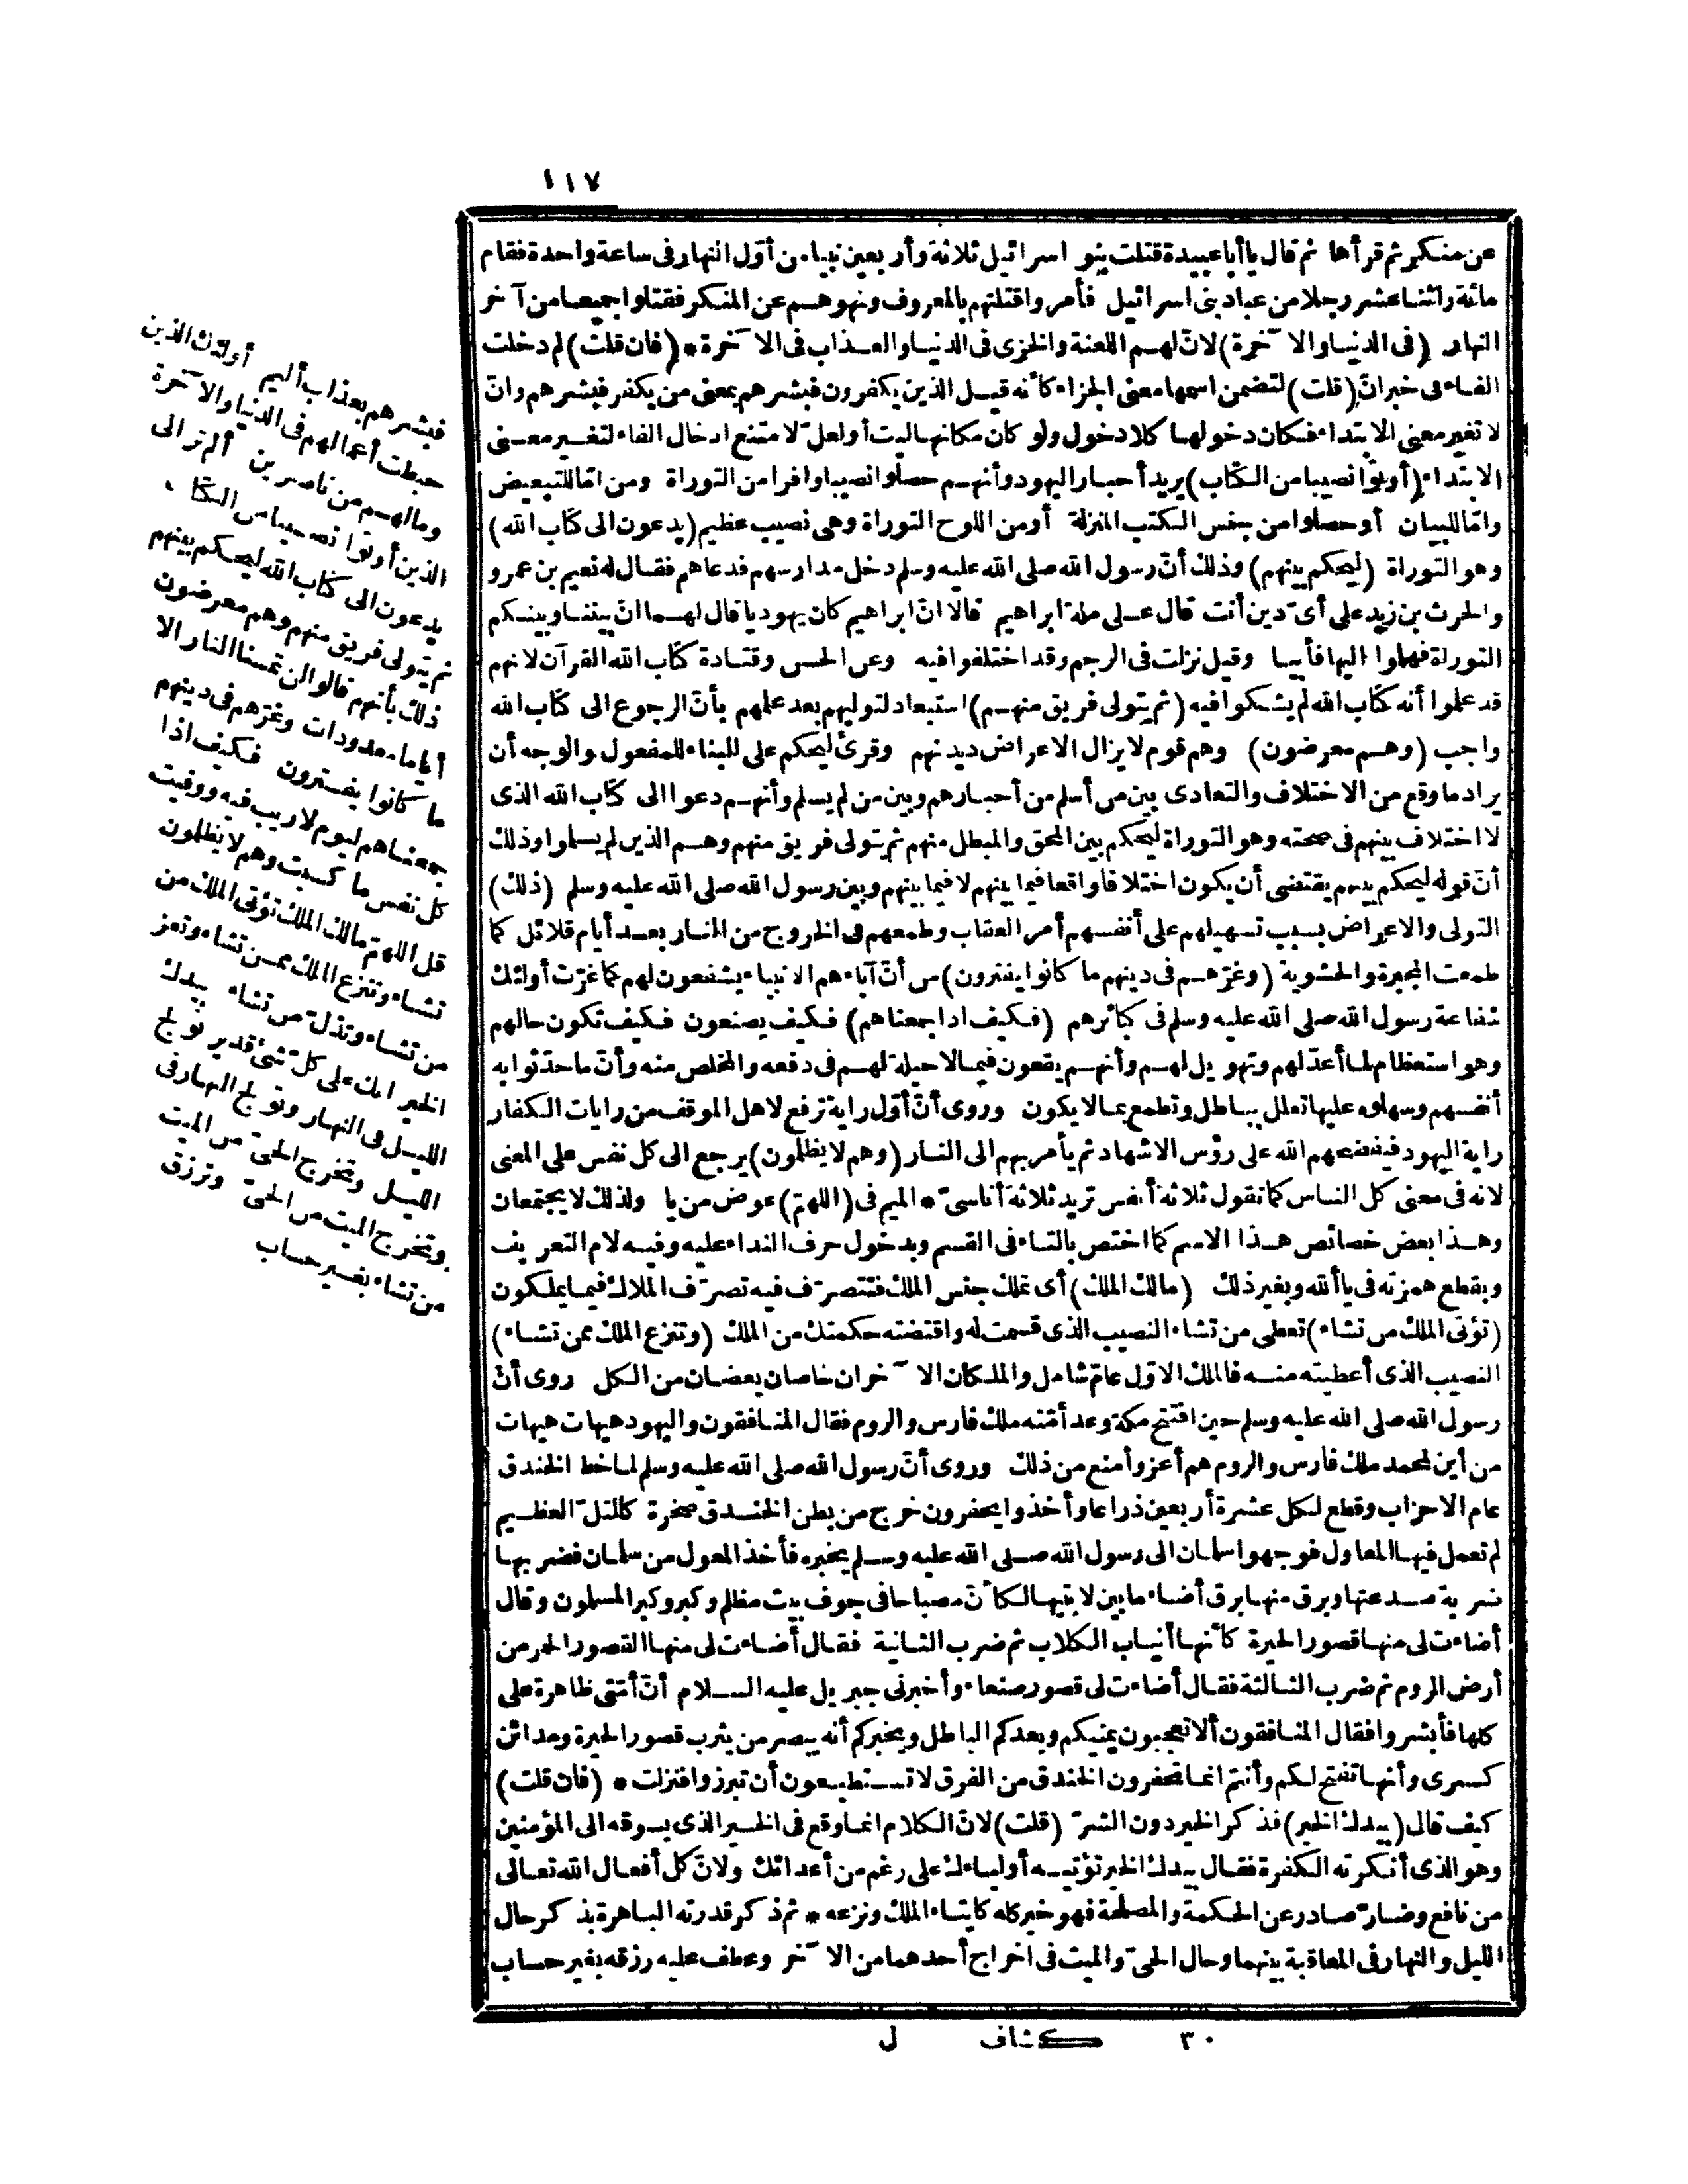 ١١٧
عن منكر ثم قرأها ثم قال يا أبا عبيدة قتلت بنو اسرائيل ثلاثة وأربعين نبيا من أوّل النهار فى ساعة واحدة فقام
مائة واثنا عشر رجلا من عباد بنى اسرائيل فأمروا قتلتهم بالمعروف ونهوهم عن المنكر فقتلوا جميعا من آخر
النهار (فى الدنيا والآخرة) لانّ لهم اللعنة والخزى فى الدنيا والعذاب فى الآخرة * (فان قلت) لم دخلت
الفاء فى خبر انّ (قلت) لتضمن اسمها معنى الجزاء كأنه قيل الذين يكفرون فبشرهم بمعنى من يكفر فبشرهم وانّ
لا تغير معنى الابتداء فكان دخولها كلا دخول ولو كان مكانها ليت أو لعلّ لامتنع ادخال الفاء لتغير معنى
الابتداء (أوتوا نصيبا من الكتاب) يريد أحبار اليهود وأنهم حصلوا نصيبا وافرا من التوراة ومن امّا للتبعيض
وامّا للبيان أو حصلوا من جنس الكتب المنزلة أو من اللوح التوراة وهى نصيب عظيم (يدعون الى كتاب الله)
وهو التوراة (ليحكم بينهم) وذلك أنّ رسول الله صلى الله عليه وسلم دخل مدارسهم فدعاهم فقال له نعيم بن عمرو
والحرث بن زيد على أىّ دين أنت قال على ملة ابراهيم قالا انّ ابراهيم كان يهوديا قال لهما انّ بيننا وبينكم
التوراة فهلموا اليها فأبيا وقيل نزلت فى الرجم وقد اختلفوا فيه وعن الحسن وقتادة كتاب الله القرآن لانهم
قد علموا أنه كتاب الله لم يشكوا فيه (ثم يتولى فريق منهم) استبعاد لتوليهم بعد علمهم بأنّ الرجوع الى كتاب الله
واجب (وهم معرضون) وهم قوم لا يزال الاعراض ديدنهم وقرئ ليحكم على البناء للمفعول والوجه أن
يراد ما وقع من الاختلاف والتعادى بين من أسلم من أحبارهم وبين من لم يسلم وأنهم دعوا الى كتاب الله الذى
لا اختلاف بينهم فى صحته وهو التوراة ليحكم بين المحق والمبطل منهم ثم يتولى فريق منهم وهم الذين لم يسلموا وذلك
أنّ قوله ليحكم بينهم يقتضى أن يكون اختلافا واقعا فيما بينهم لا فيما بينهم وبين رسول الله صلى الله عليه وسلم (ذلك)
التولى والاعراض بسبب تسهيلهم على أنفسهم أمر العقاب وطمعهم فى الخروج من النار بعد أيام قلائل كما
طمعت المجبرة والحشوية (وغرّهم فى دينهم ما كانوا يفترون) من أنّ آباءهم الانبياء يشفعون لهم كما غرّت أولئك
شفاعة رسول الله صلى الله عليه وسلم فى كبائرهم (فكيف اذا جمعناهم) فكيف يصنعون فكيف تكون حالهم
وهو استعظام لما أعدّ لهم وتهويل لهم وأنهم يقعون فيما لا حيلة لهم فى دفعه والمخلص منه وأنّ ما حدّثوا به
أنفسهم وسهلوه عليها تعلل بباطل وتطمع بما لا يكون وروى أنّ أوّل راية ترفع لاهل الموقف من رايات الكفار
راية اليهود فيفضحهم الله على رؤس الاشهاد ثم يأمر بهم الى النار (وهم لا يظلمون) يرجع الى كل نفس على المعنى
لانه فى معنى كل الناس كما تقول ثلاثة أنفس تريد ثلاثة أناسىّ * الميم فى (اللهمّ) عوض من يا ولذلك لا يجتمعان
وهذا بعض خصائص هذا الاسم كما اختص بالتاء فى القسم وبدخول حرف النداء عليه وفيه لام التعريف
وبقطع همزته فى يا ألله وبغير ذلك (مالك الملك) أى تملك جنس الملك فتتصرّف فيه تصرّف الملاك فيما يملكون
(تؤتى الملك من تشاء) تعطى من تشاء النصيب الذى قسمت له واقتضته حكمتك من الملك (وتنزع الملك ممن تشاء)
النصيب الذى أعطيته منه فالملك الاوّل عامّ شامل والملكان الآخران خاصان بعضان من الكل روى أنّ
رسول الله صلى الله عليه وسلم حين افتتح مكة وعد أمّته ملك فارس والروم فقال المنافقون واليهود هيهات هيهات
من أين لمحمد ملك فارس والروم هم أعز وأمنع من ذلك وروى أنّ رسول الله صلى الله عليه وسلم لما خط الخندق
عام الاحزاب وقطع لكل عشرة أربعين ذراعا وأخذوا يحفرون خرج من بطن الخندق صخرة كالتلّ العظيم
لم تعمل فيها المعاول فوجهوا سلمان الى رسول الله صلى الله عليه وسلم يخبره فأخذ المعول من سلمان فضربها
ضربة صدعتها وبرق منها برق أضاء ما بين لابتيها لكأنّ مصباحا فى جوف بيت مظلم وكبر وكبر المسلمون وقال
أضاءت لى منها قصور الحيرة كأنها أنياب الكلاب ثم ضرب الثانية فقال أضاءت لى منها القصور الحمر من
أرض الروم ثم ضرب الثالثة فقال أضاءت لى قصور صنعاء وأخبرنى جبريل عليه السلام أنّ أمّتى ظاهرة على
كلها فأبشروا فقال المنافقون ألا تعجبون يمنيكم ويعدكم الباطل ويخبركم أنه يبصر من يثرب قصور الحيرة ومدائن
كسرى وأنها تفتح لكم وأنتم انما تحفرون الخندق من الفرق لا تستطيعون أن تبرزوا فنزلت * (فان قلت)
كيف قال (بيدك الخير) فذكر الخير دون الشرّ (قلت) لانّ الكلام انما وقع فى الخير الذى يسوقه الى المؤمنين
وهو الذى أنكرته الكفرة فقال بيدك الخير تؤتيه أولياءك على رغم من أعدائك ولانّ كل أفعال الله تعالى
من نافع وضارّ صادر عن الحكمة والمصلحة فهو خير كله كايتاء الملك ونزعه * ثم ذكر قدرته الباهرة بذكر حال
الليل والنهار فى المعاقبة بينهما وحال الحىّ والميت فى اخراج أحدهما من الآخر وعطف عليه رزقه بغير حساب
فبشرهم بعذاب أليم أولئك الذين
حبطت أعمالهم فى الدنيا والآخرة
وما لهم من ناصرين ألم تر الى
الذين أوتوا نصيبا من الكتاب
يدعون الى كتاب الله ليحكم بينهم
ثم يتولى فريق منهم وهم معرضون
ذلك بأنهم قالوا لن تمسنا النار الا
أياما معدودات وغرّهم فى دينهم
ما كانوا يفترون فكيف اذا
جمعناهم ليوم لا ريب فيه ووفيت
كل نفس ما كسبت وهم لا يظلمون
قل اللهمّ مالك الملك تؤتى الملك من
تشاء وتنزع الملك ممن تشاء وتعز
من تشاء وتذلّ من تشاء بيدك
الخير انك على كل شئ قدير تولج
الليل فى النهار وتولج النهار فى
الليل وتخرج الحىّ من الميت
وتخرج الميت من الحىّ وترزق
من تشاء بغير حساب
٣٠ كشاف ل